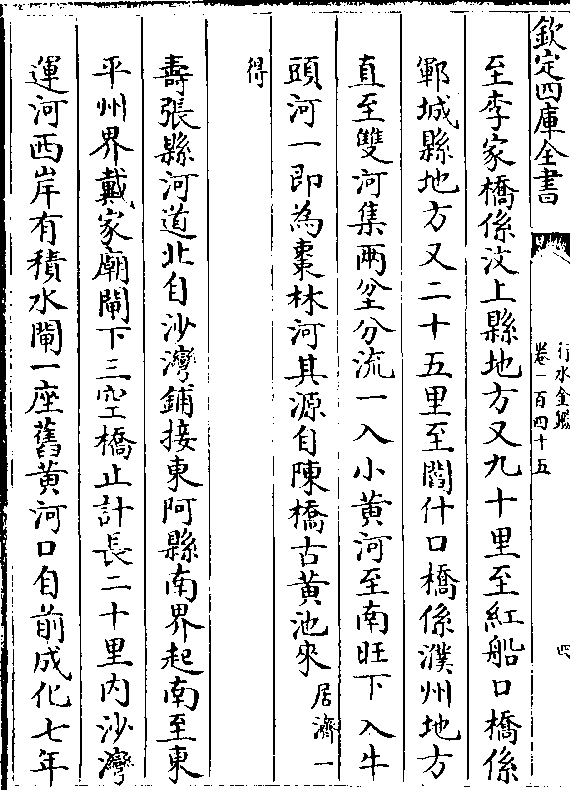 欽定四庫全書
行水金鑑
卷一百四十五
四
至李家橋係汶上縣地方又九十里至紅船口橋係
鄆城縣地方又二十五里至閻什口橋係濮州地方
直至雙河集兩坌分流一入小黄河至南旺下入牛
頭河一即為棗林河其源自陳橋古黄池來居濟一
得
壽張縣河道北自沙灣鋪接東阿縣南界起南至東
平州界戴家廟閘下三空橋止計長二十里内沙灣
運河西岸有積水閘一座舊黄河口自前成化七年